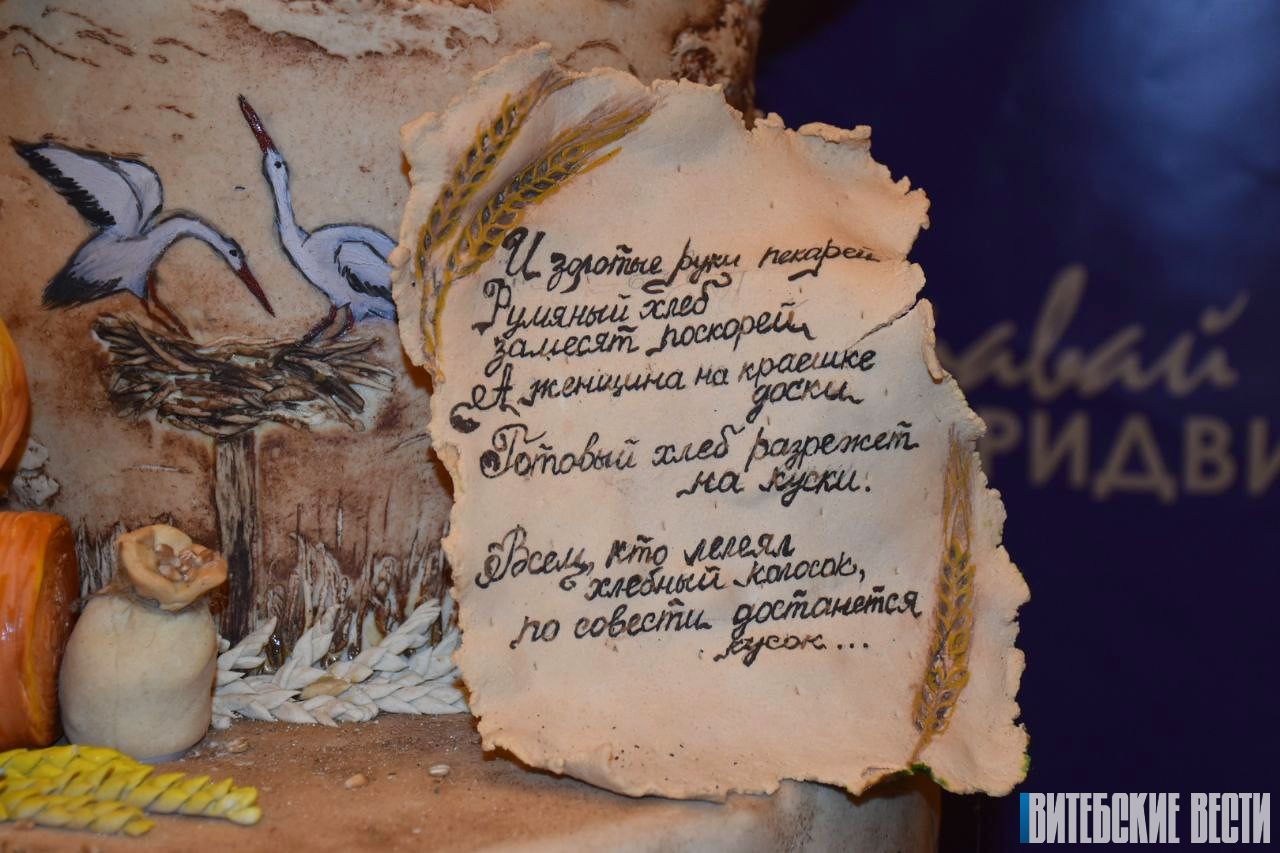 И золотые руки пекарей
Румяный хлеб
замесят поскорей
А женщина на краешке
доски
Готовый хлеб разрежет
на куски.
Всем, кто лелеял
хлебный колосок,
по совести достанется
кусок...
авай
РИДВИ
ВИТЕБСКИЕ ВЕСТИ